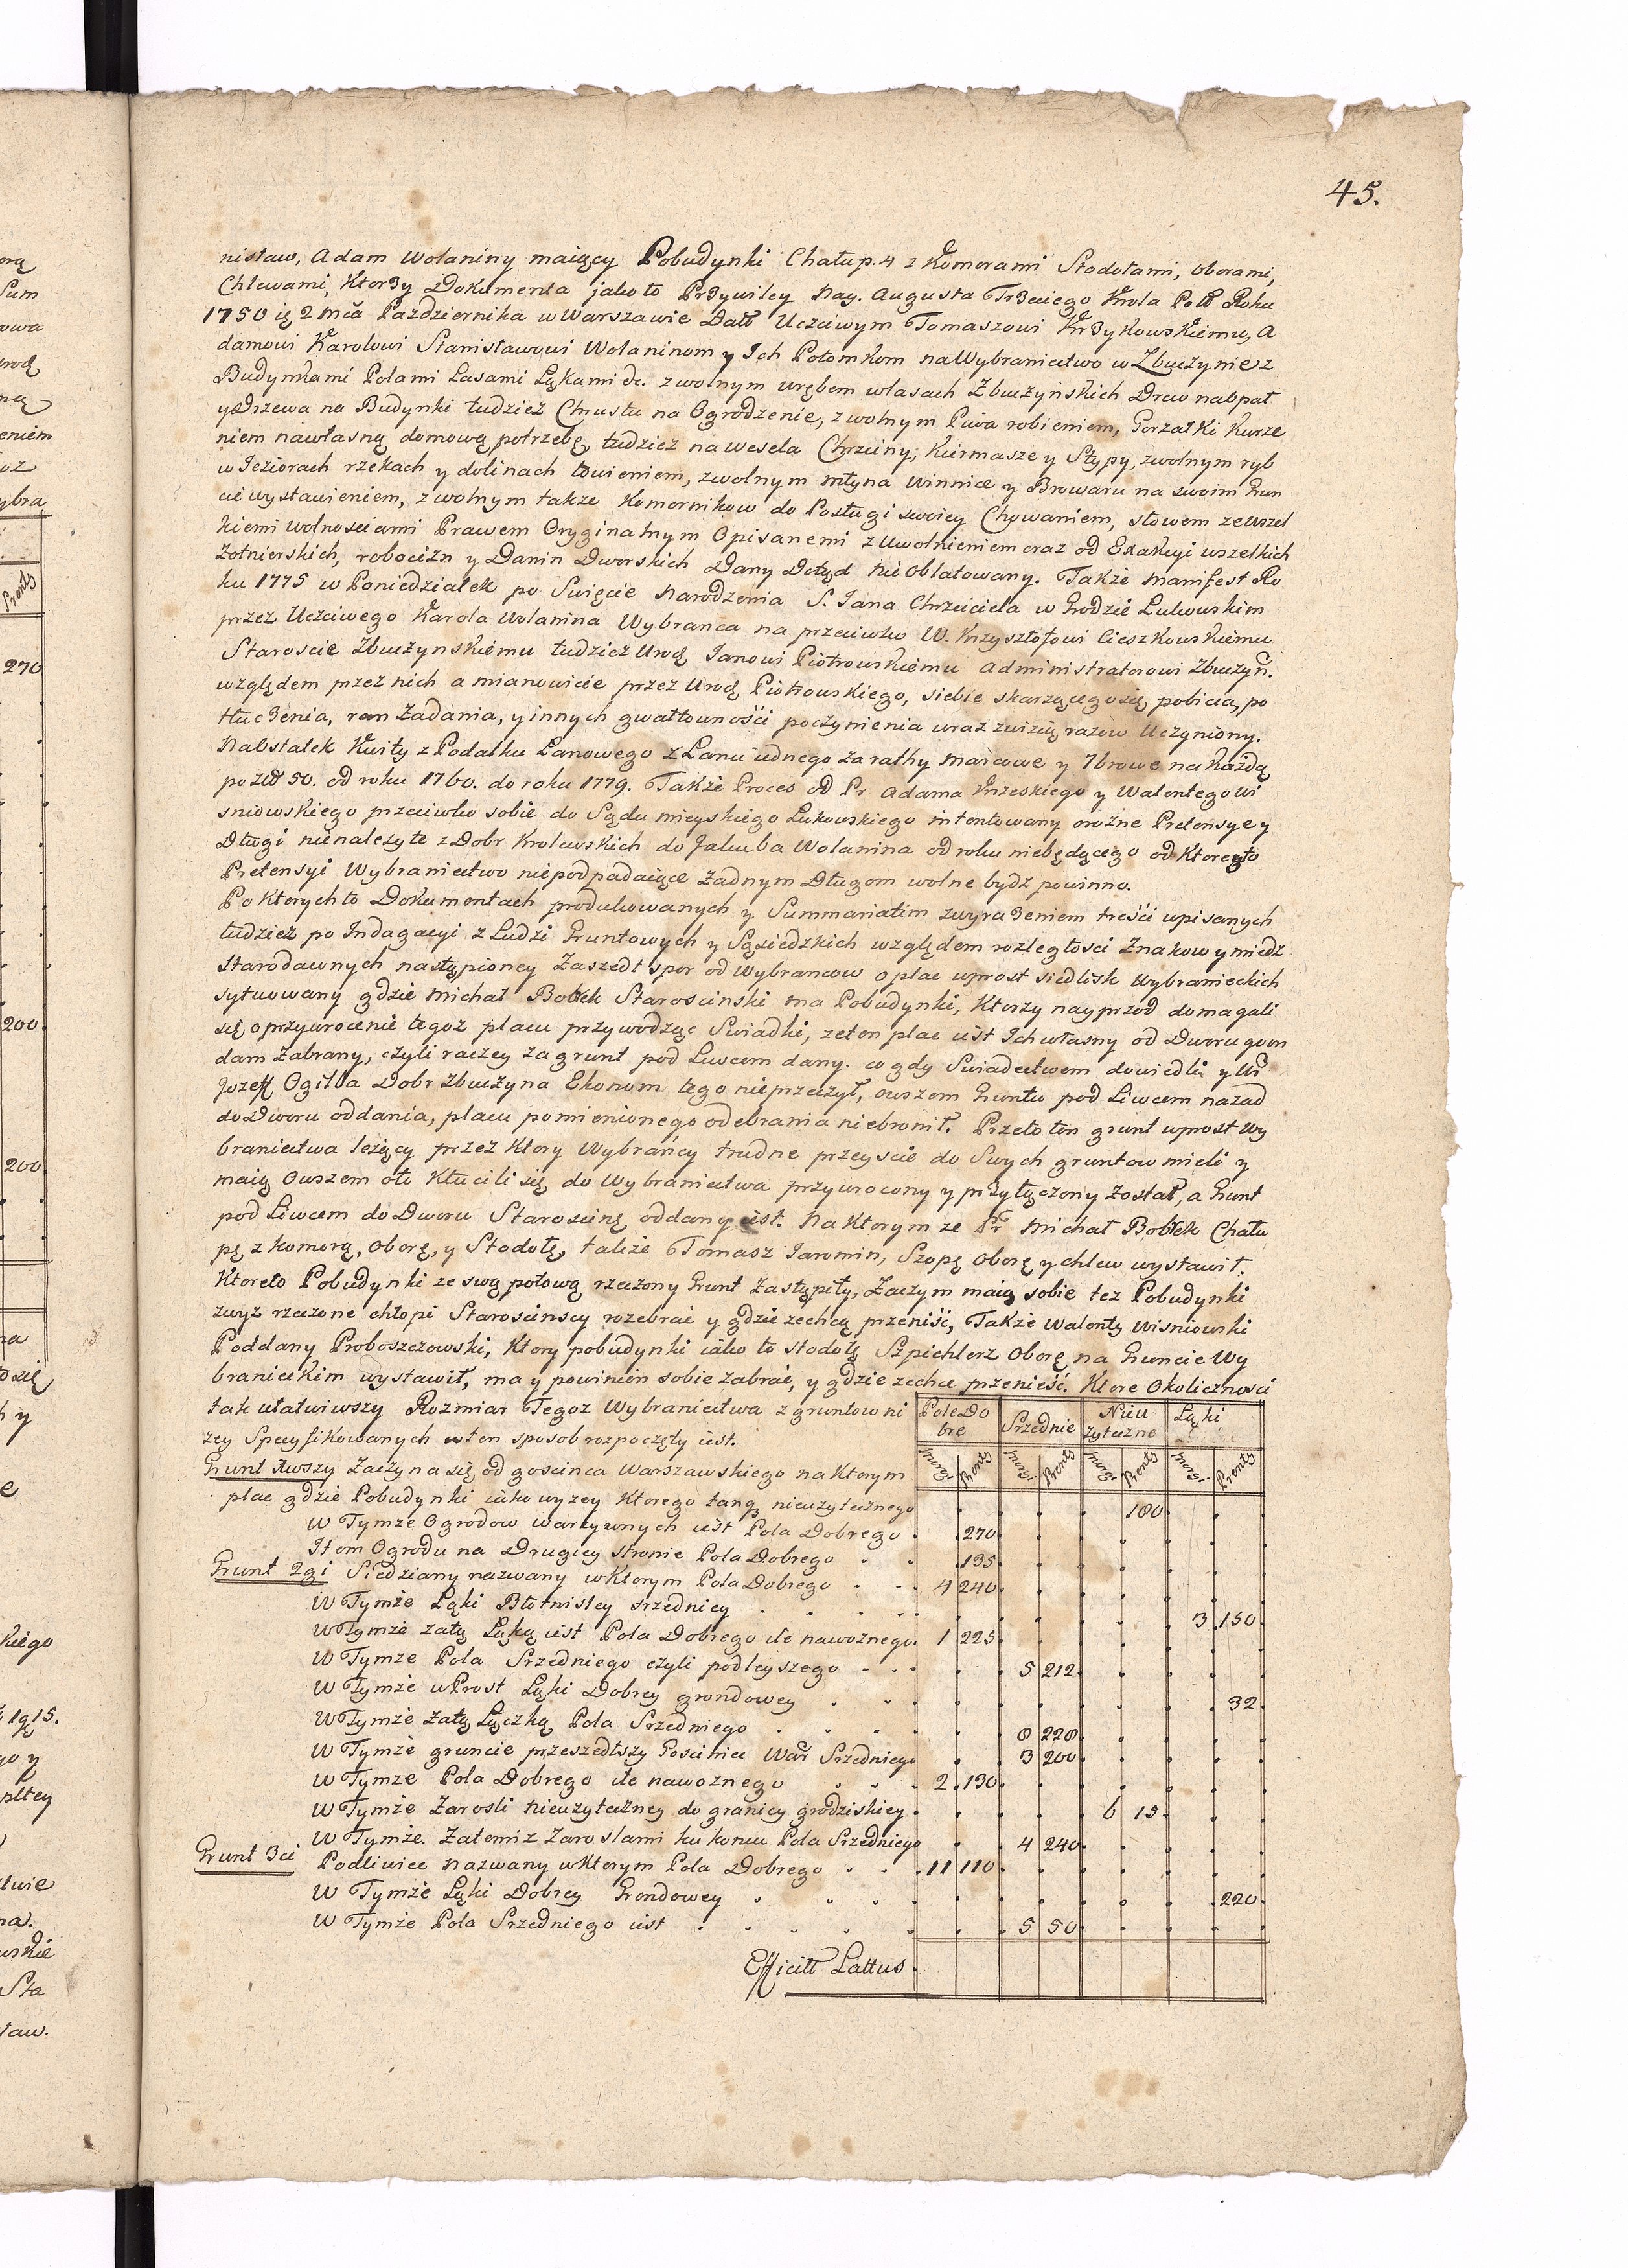 45.
nisław, Adam Wolaniny maiący Pobudynki Chałup. 4 z Komorami Stodołami, Oborami,
Chlewami, Ktorzy Dokumenta jako to Przywiley Nay. Augusta Trzeciego Krola Pol Roku
1750 ię 2 Mca Pazdziernika w Warszawie Datt Uczciwym Tomaszowi Krzykowskiemu, A
damowi Karolowi Stanisławowi Wolaninom y Ich Potomkom na Wybraniectwo w Zbuczynie z
Budynkami Polami Lasami Łąkami &c. z wolnym wrębem w lasach Zbuczyńskich Drew na opał
y Drzewa na Budynki tudzież Chrustu na Ogrodzenie, z wolnym Piwa robieniem, Gorzałki Kurze
niem na własną domową potrzebę, tudzież na Wesela Chrzciny, Kiermasze y Stypy, z wolnym ryb
w Jeziorach rzekach y dolinach łowieniem, z wolnym młyna winnice y Browaru na swoim Grun
cie wystawieniem, z wolnym także Komornikow do Posługi swoiey Chowaniem, słowem ze wszel
kiemi wolnosciami Prawem Oryginalnym Opisanemi z Uwolnieniem oraz od Exakcyi wszelkich
Żołnierskich, robocizn y Danin Dworskich Dany Dotąd nie Oblatowany. Także Manifest Ro
ku 1775 w Poniedziałek po Swięcie Narodzenia S. Jana Chrzciciela w Grodzie Łukowskim
przez Uczciwego Karola Wolanina Wybranca na przeciwko W. Krzysztofowi Cieszkowskiemu
Staroscie Zbuczynskiemu tudzież Urod Janowi Piotrowskiemu Administratorowi Zbuczyń.
względem przez nich a mianowicie przez Urod Piotrowskiego, siebie skarzącego się, pobicia, po
tłuczenia, ran Zadania, y innych gwałtowności poczynienia wraz z wizią razow Uczyniony.
Na Ostatek Kwity z Podatku Łanowego z Łanu iednego za rathy Marcowe y 7browe na każdą
po zł 50. od roku 1760. do roku 1779. Także Proces od Pr Adama Krzeskiego y Walentego Wi
sniowskiego przeciwko sobie do Sądu mieyskiego Łukowskiego intentowany o rożne Pretensye y
Długi nienależyte z Dobr Krolewskich do Jakuba Wolanina od roku niebędącego od Ktoregto
Pretensyi Wybraniectwo niepodpadaiące żadnym Długom wolne bydz powinno.
Po Ktorych to Dokumentach produkowanych y Summariatim z wyrażeniem treści wpisanych
tudzież po Indagacyi z Ludzi Gruntowych y Sąsiedzkich względem rozległosci Znakow y miedz
starodawnych nastąpioney Zaszedł spor od Wybrancow o plac wprost siedlisk Wybranieckich
sytuowany gdzie Michał Bobek Staroscinski ma Pobudynki, Ktorzy nayprzod domagali
się o przywrocenie tegoz placu przywodząc Swiadki, ze ten plac iest Ich własny od Dworu gwon
dam Zabrany, czyli raczey za grunt pod Liwcem dany. co gdy Swiadectwem dowiedli y Ur
Jozeff Ogilba Dobr Zbuczyna Ekonom tego nieprzeczył, owszem Gruntu pod Liwcem nazad
do Dworu oddania, placu pomienionego odebrania niebronił. Przeto ten grunt wprost Wy
braniectwa leżący przez Ktory Wybrańcy trudne przeyscie do Swych gruntow mieli y
maią Owszem oto Kłucili się do Wybraniectwa przywrocony y przyłączony został, a Grunt
pod Liwcem do Dworu Staroscinę oddany iest. Na Ktorym ze Pr Michał Bobek Chału
pę z Komorą, Oborę, y Stodołę, także Tomasz Jaromin, Szopę Oborę y chlew wystawił.
Ktoreto Pobudynki ze swą połową rzeczony Grunt Zastąpiły, Zaczym maią sobie też Pobudynki
zwyz rzeczone chłopi Staroscinscy rozebrać y gdzie zechcą przeniść, Także Walenty Wisniowski
Poddany Proboszczowski, Ktory pobudynki iako to Stodołę Szpichlerz Oborę na Gruncie Wy
branieckim wystawił, ma y powinien sobie zabrać, y gdzie zechce przenieść. Ktore Okolicznosci
tak ułatwiwszy Rozmiar Tegoz Wybraniectwa z gruntow ni
zey Specyfikowanych w ten sposob rozpoczęty iest.
Pole Do bre | Srzednie | Nieu żyteczne | Łąki
Morgi | Pręty | Morgi | Pręty | Morgi | Pręty | Morgi | Pręty
Grunt 1wszy Zaczyna się od goscinca Warszawskiego na Ktorym
plac gdzie Pobudynki iako wyzey Ktorego łanę nieużytecznego 180
W Tymże Ogrodow Warzywnych iest Pola Dobrego 270
Item Ogrodu na Drugiey stronie Pola Dobrego 195
Grunt 2gi Siedziany nazwany w Ktorym Pola Dobrego 4 240
W Tymże Łąki Błotnistey srzedniey 3 150
W Tymże zatą Łąką iest Pola Dobrego ile nawoznego 1 225
W Tymze Pola Srzedniego czyli podleyszego 5 212
W Tymże w Prost Łąki Dobrey grondowey 32
W Tymże Zatą Łączką Pola Srzedniego 0 220
W Tymże gruncie przeszedłszy Gosciniec War Srzedniego 3 200
W Tymze Pola Dobrego ile nawoznego 2 130
W Tymże Zarosli Nieużyteczney do granicy grodziskiey 6 15
W Tymże. Zatemiz Zaroslami ku koncu Pola Srzedniego 4 240
Grunt 3ci Podliwiec nazwany w Ktorym Pola Dobrego 11 110
W Tymże Łąki Dobrey Grondowey 220
W Tymże Pola Srzedniego iest 5 50
Efficitt Lattus